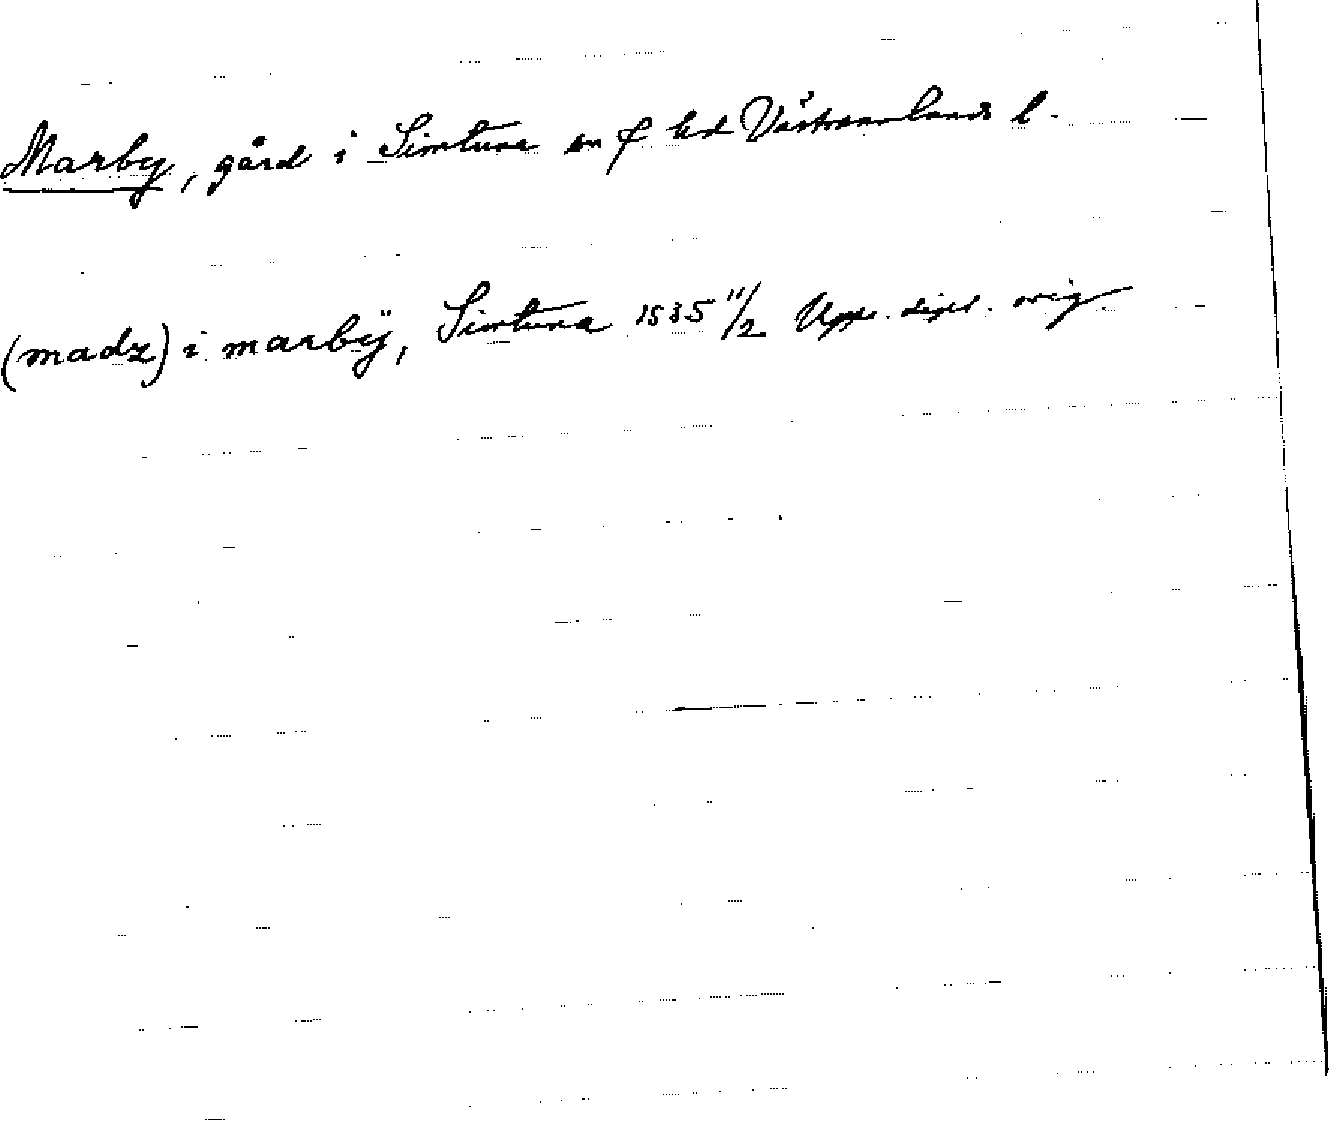 Marby, gård i Simtuna sn o hd Västmanlands l.
(madz) i marbÿ, Simtuna 1535 11/2 Upps. dipl. orig.